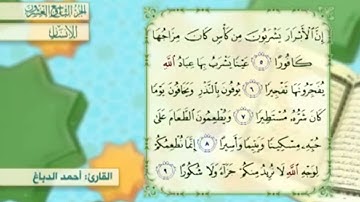 الجزء التاسع والعشرون
الإنسان
إِنَّ ٱلْأَبْرَارَ يَشْرَبُونَ مِن كَأْسٍ كَانَ مِزَاجُهَا
كَافُورًا ٥ عَيْنًا يَشْرَبُ بِهَا عِبَادُ ٱللَّهِ
يُفَجِّرُونَهَا تَفْجِيرًا ٦ يُوفُونَ بِٱلنَّذْرِ وَيَخَافُونَ يَوْمًا
كَانَ شَرُّهُۥ مُسْتَطِيرًا ٧ وَيُطْعِمُونَ ٱلطَّعَامَ عَلَىٰ
حُبِّهِۦ مِسْكِينًا وَيَتِيمًا وَأَسِيرًا ٨ إِنَّمَا نُطْعِمُكُمْ
لِوَجْهِ ٱللَّهِ لَا نُرِيدُ مِنكُمْ جَزَآءً وَلَا شُكُورًا ٩
القارئ: أحمد الدباغ